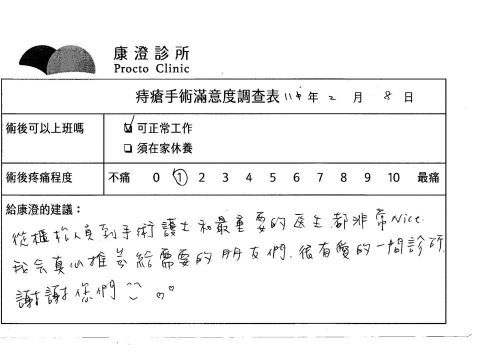 康澄診所
Procto Clinic
痔瘡手術滿意度調查表 114年 2 月 8 日
術後可以上班嗎 ☑ 可正常工作
□ 須在家休養
術後疼痛程度 不痛 0 1 2 3 4 5 6 7 8 9 10 最痛
給康澄的建議：
從櫃抬人員到手術護士和最重要的医生都非常Nice.
我会真心推荐給需要的朋友們. 很有愛的一間診所
謝謝您們